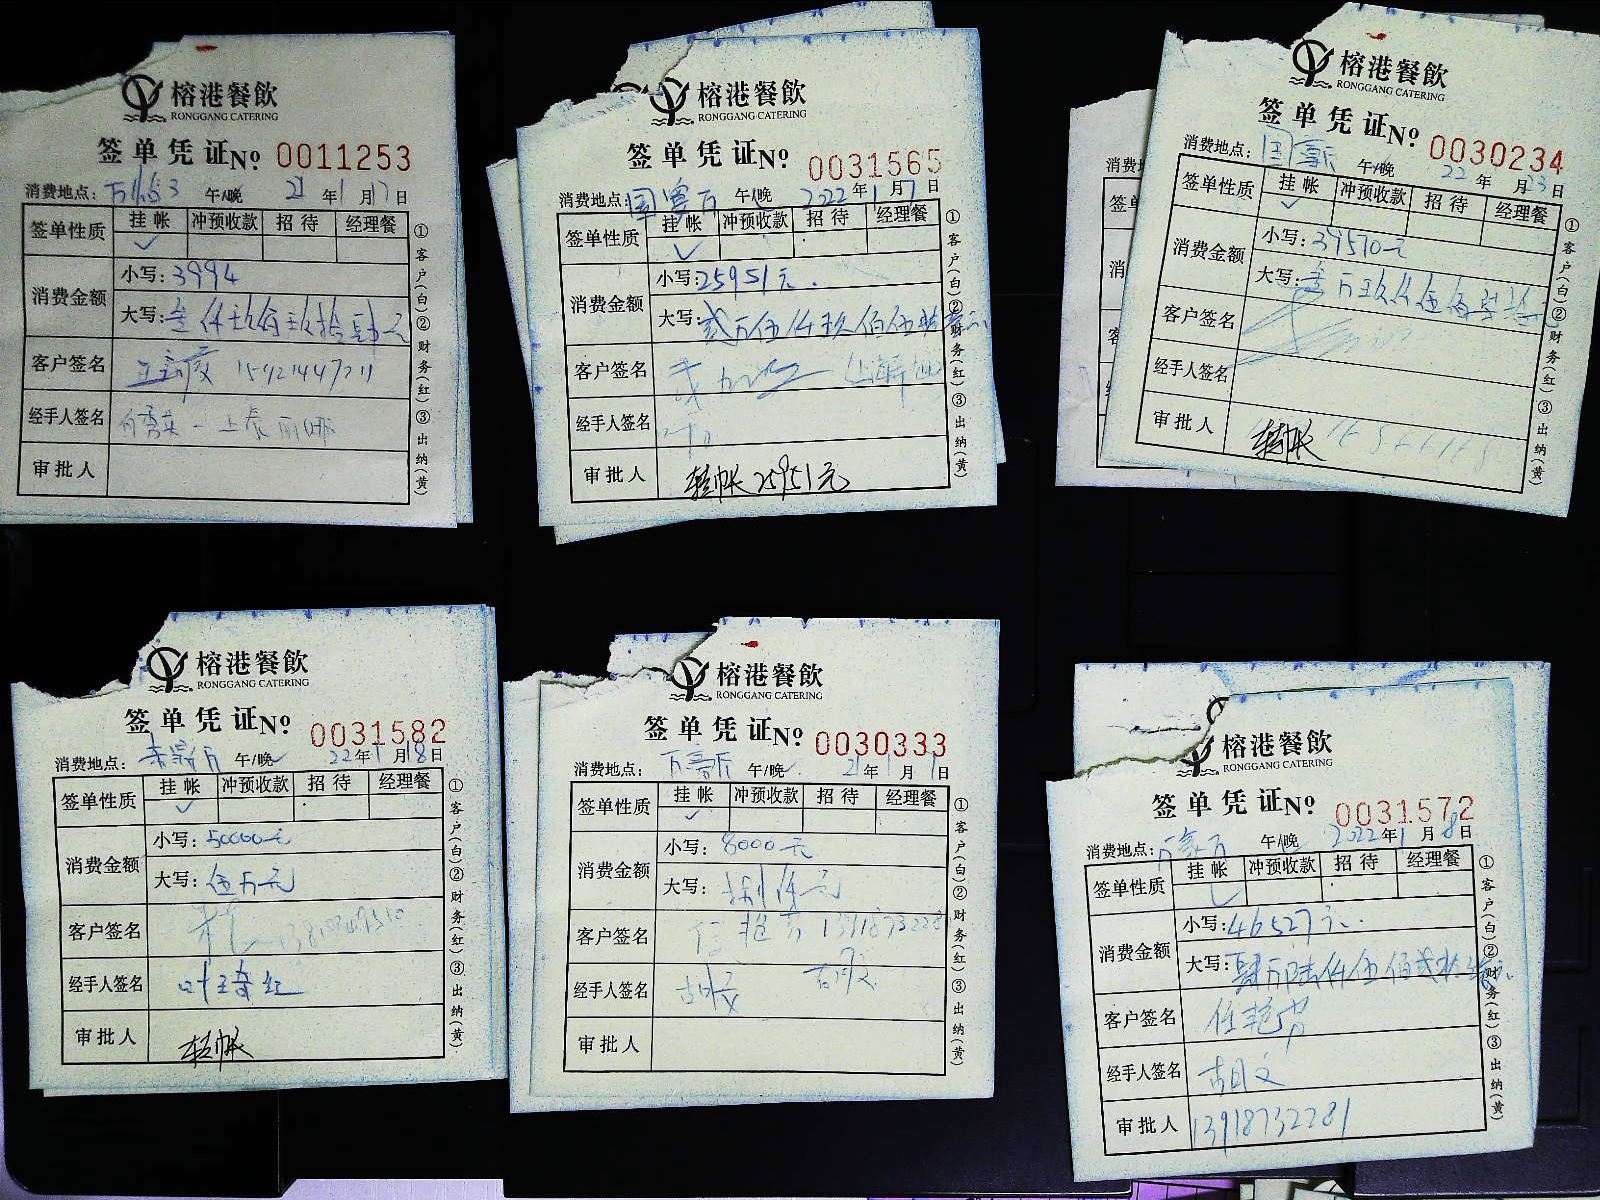 榕港餐飲
RONGGANG CATERING
签单凭证 No 0011253
消费地点: 午/晚 21年1月17日
签单性质 挂帐 冲预收款 招待 经理餐
✓
消费金额 小写:3994
大写:叁仟玖佰玖拾肆元
客户签名 15921447211
经手人签名
审批人
①客户(白)②财务(红)③出纳(黄)
榕港餐飲
RONGGANG CATERING
签单凭证 No 0031565
消费地点:国宴厅 午/晚 2022年1月7日
签单性质 挂帐 冲预收款 招待 经理餐
✓
消费金额 小写:25951元.
大写:贰万伍仟玖佰伍拾壹元
客户签名
经手人签名
审批人 转帐25951元
①客户(白)②财务(红)③出纳(黄)
榕港餐飲
RONGGANG CATERING
签单凭证 No 0030234
消费地点: 午/晚 22年 月23日
签单性质 挂帐 冲预收款 招待 经理餐
✓
消费金额 小写:39570元
大写:叁万玖仟伍佰柒拾元
客户签名
经手人签名
审批人 转帐
①客户(白)②财务(红)③出纳(黄)
榕港餐飲
RONGGANG CATERING
签单凭证 No 0031582
消费地点: 午/晚 22年1月18日
签单性质 挂帐 冲预收款 招待 经理餐
✓
消费金额 小写:50000元
大写:伍万元
客户签名
经手人签名 叶琦红
审批人 转帐
①客户(白)②财务(红)③出纳(黄)
榕港餐飲
RONGGANG CATERING
签单凭证 No 0030333
消费地点:万豪厅 午/晚 21年1月1日
签单性质 挂帐 冲预收款 招待 经理餐
✓
消费金额 小写:8000元
大写:捌仟元
客户签名 任艳芳
经手人签名 胡文 胡文
审批人
①客户(白)②财务(红)③出纳(黄)
榕港餐飲
RONGGANG CATERING
签单凭证 No 0031572
消费地点:万豪厅 午/晚 2022年1月8日
签单性质 挂帐 冲预收款 招待 经理餐
✓
消费金额 小写:46527元.
大写:肆万陆仟伍佰贰拾柒元
客户签名 任艳芳
经手人签名 胡文
审批人 13918732281
①客户(白)②财务(红)③出纳(黄)